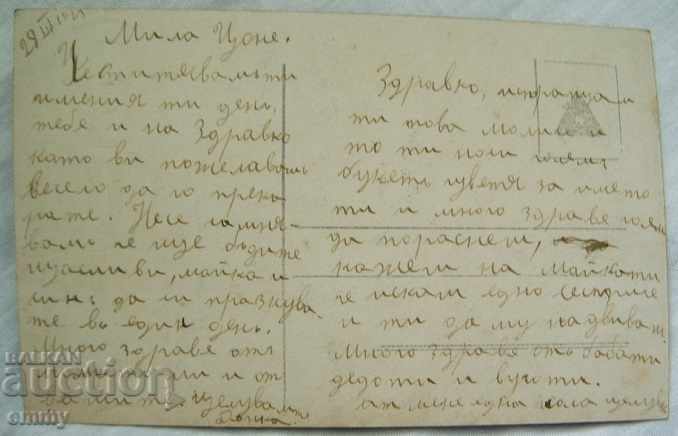 28 III
Мила Цоне.
Честитявамъ ти
имения ти день,
тебе и на Здравко
като ви пожелавамъ
весело да го прека
рате. Несе съмня
вамъ че ще бъдите
щасливи, майка и
синъ да си празнува
те въ един день.
Много здраве отъ
и от
ти. Целувамте
Здравко, изпращам
ти това момиче
то ти носи големъ
букетъ цветя за името
ти и много здраве голям
да пораснеш,
кажеш на майка ти
че искам едно сестриче
и ти да му надвиваш
Много здраве отъ баба ти
дедо ти и вуйчо ти.
от мене една цела целувка
БАЛКАН
Auction
emmy